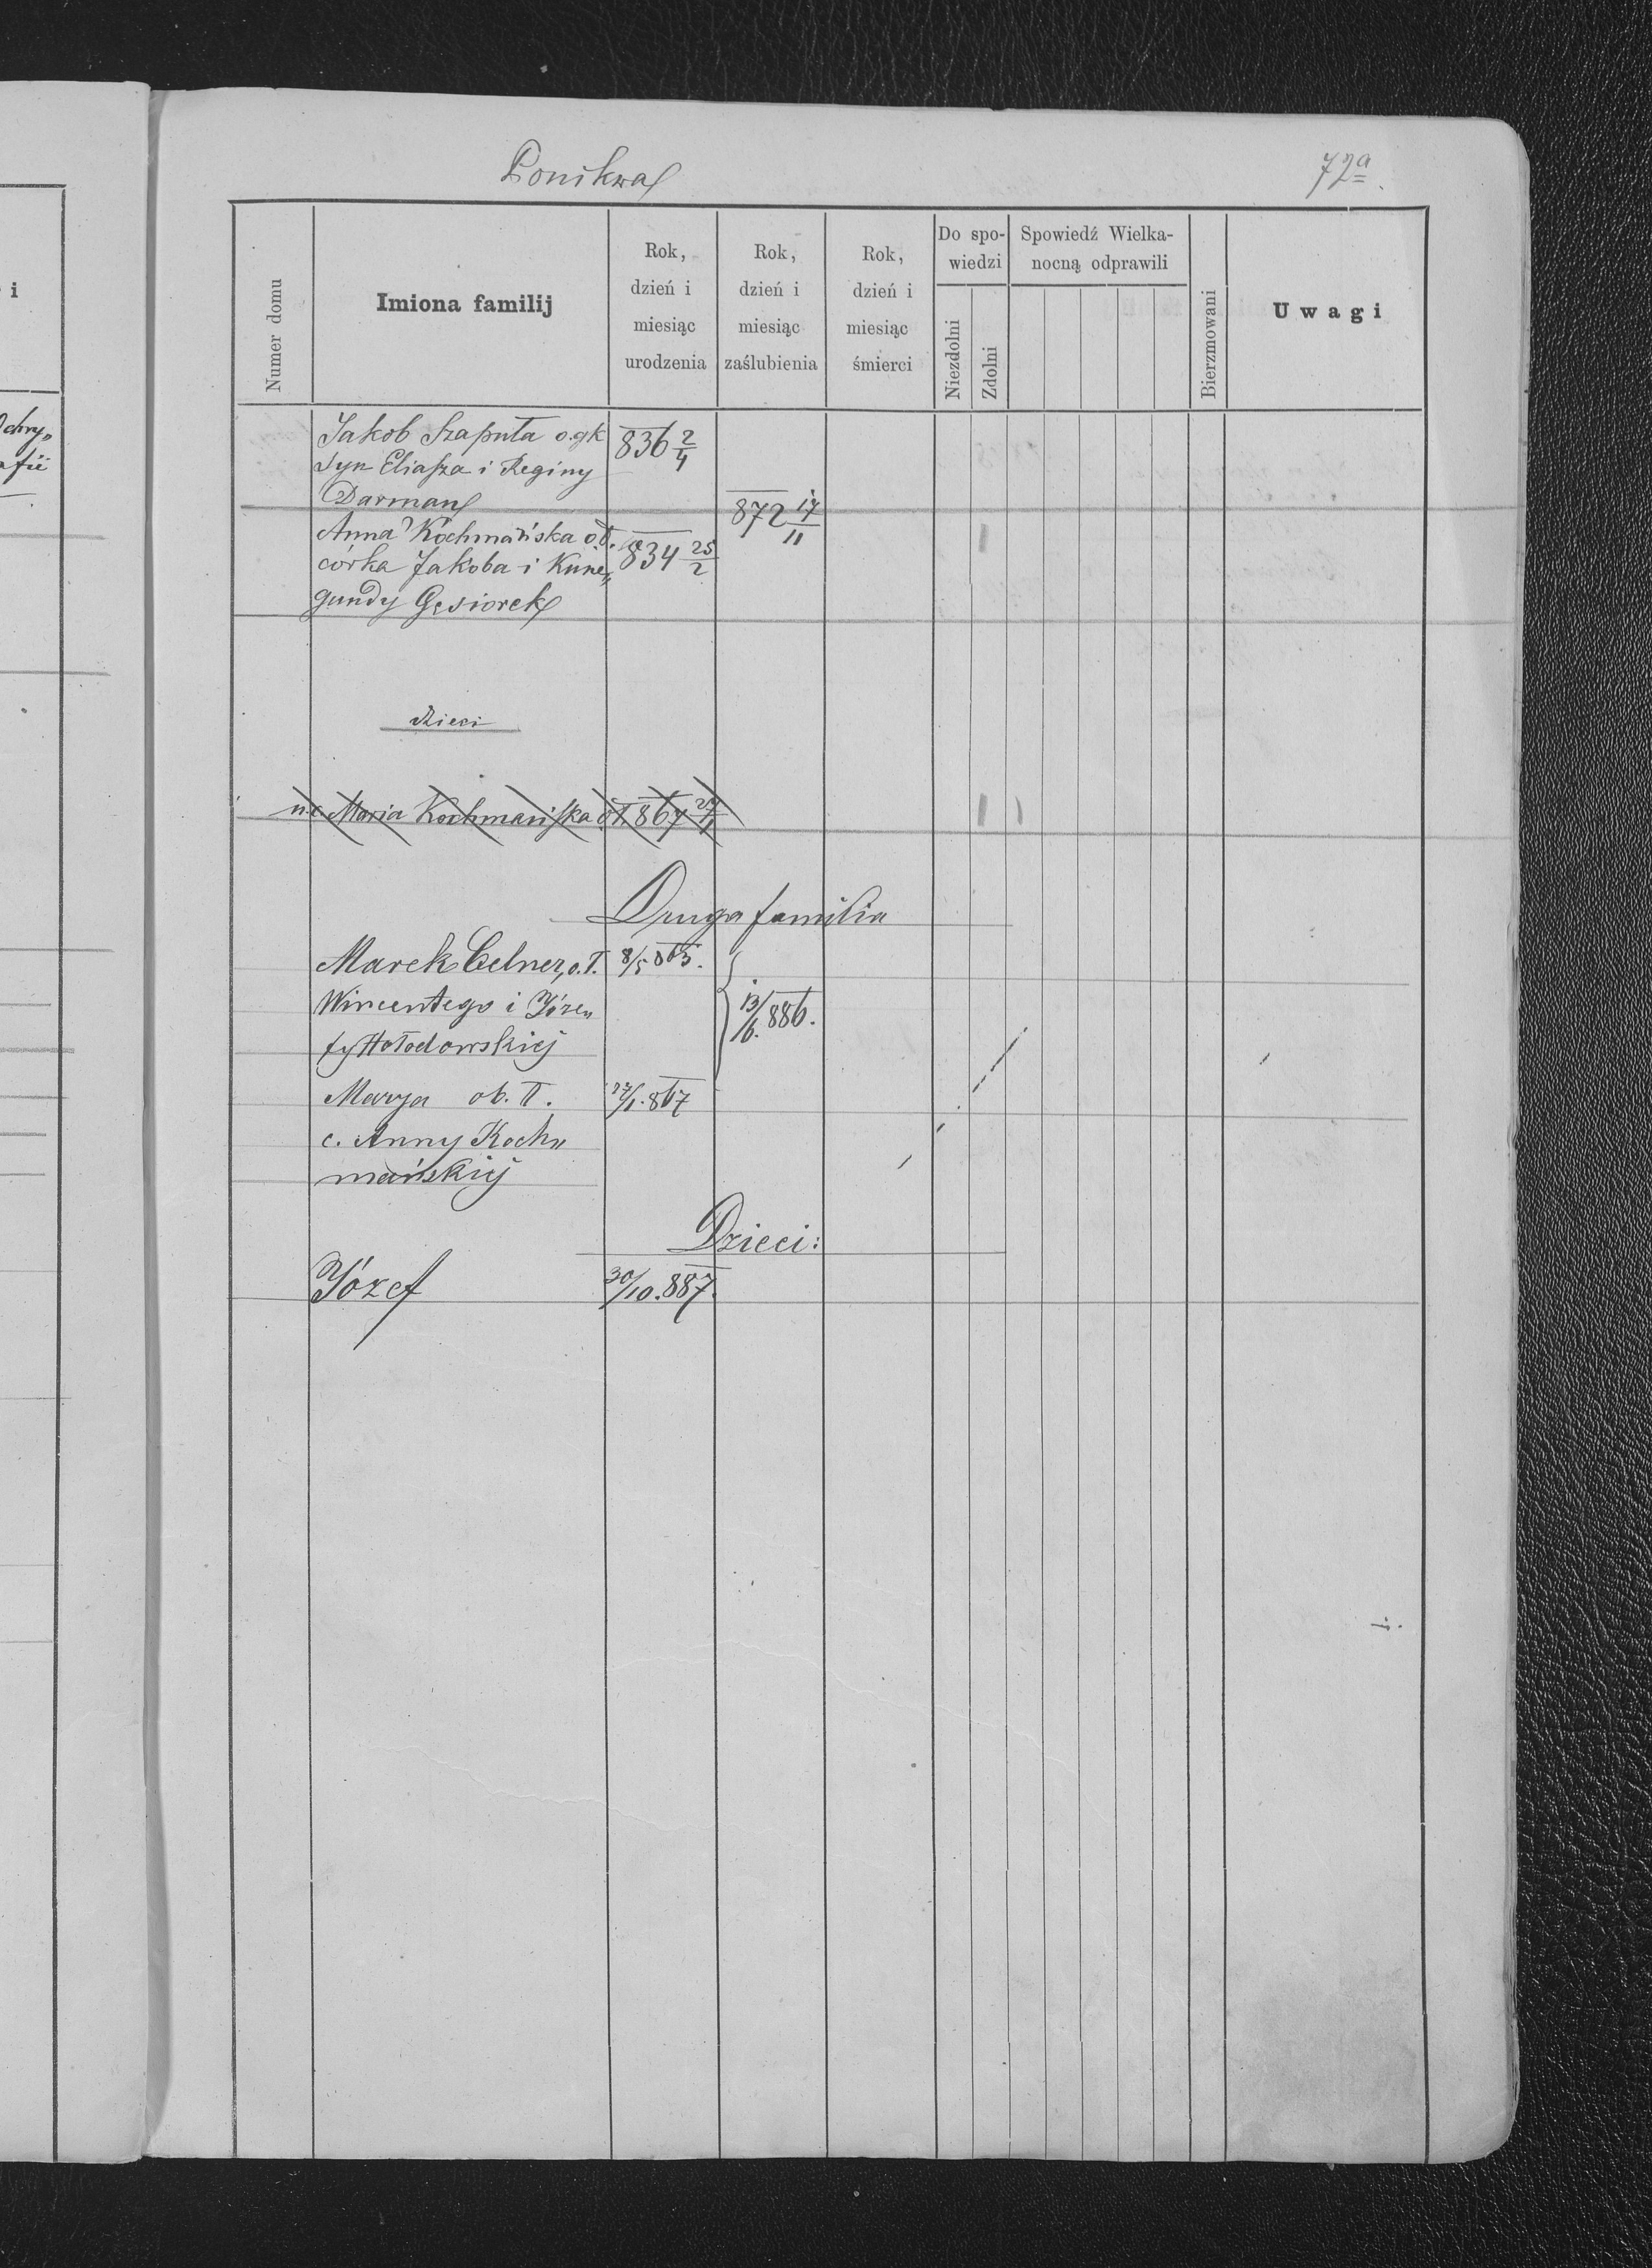 Ponikwa
72a
i
Numer domu
Imiona familij
Rok,
dzień i
miesiąc
urodzenia
Rok,
dzień i
miesiąc
zaślubienia
Rok,
dzień i
miesiąc
śmierci
Do spo-
wiedzi
Niezdolni
Zdolni
Spowiedź Wielka-
nocną odprawili
Bierzmowani
Uwagi
Jakob Szaputa o.gk 836 2/4
Syn Eliasza i Reginy
Darman
872 17/11
Anna Kochmańska oł.
córka Jakoba i Kune„ 834 25/2
gundy Gęsiorek
Dzieci
n.c. Maria Kochmańska oł. 867 27/1
Druga familia
Marek Celner, o.ł. 8/5 863.
Wincentego i Józe„ 13/6. 886.
fy Hołodowskiej
Marya ob. ł. 27/1. 867
c. Anny Koch„
mańskiej
Dzieci:
Józef 30/10. 887.